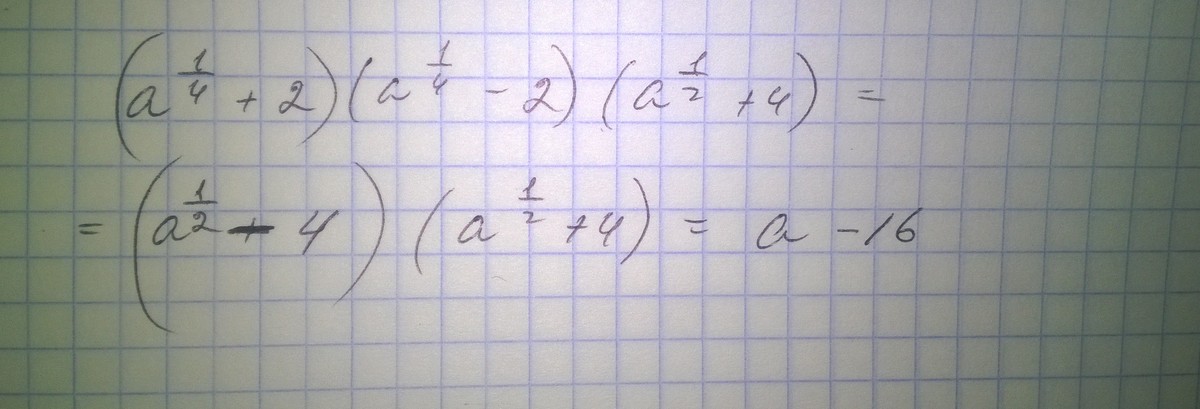 (a^(1/4) + 2)(a^(1/4) - 2)(a^(1/2) + 4) =
= (a^(1/2) - 4)(a^(1/2) + 4) = a - 16